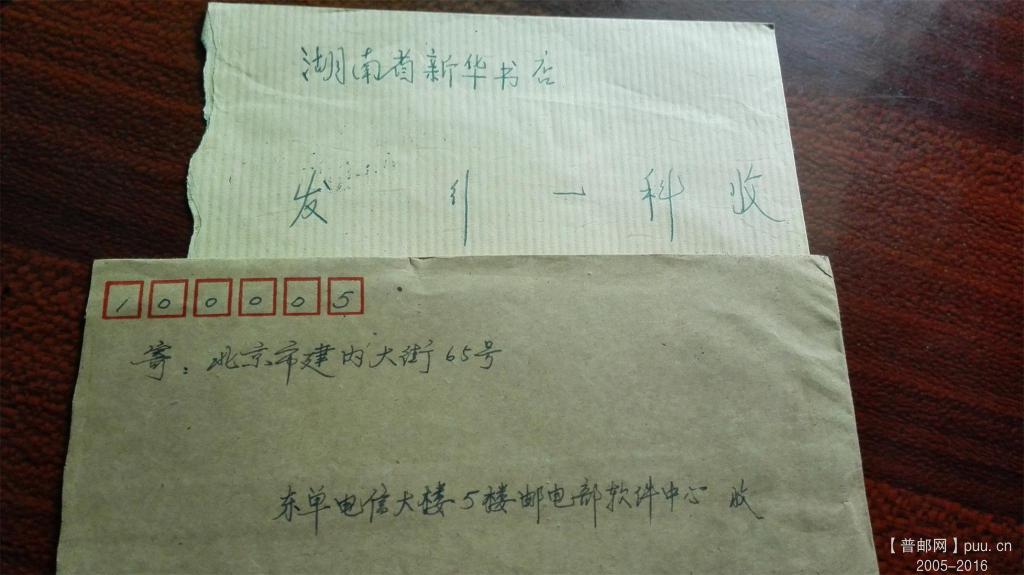 湖南省新华书店
发引一科收
100005
寄：北京市建内大街65号
东单电信大楼5楼邮电部软件中心 收
【普邮网】puu.cn
2005-2016